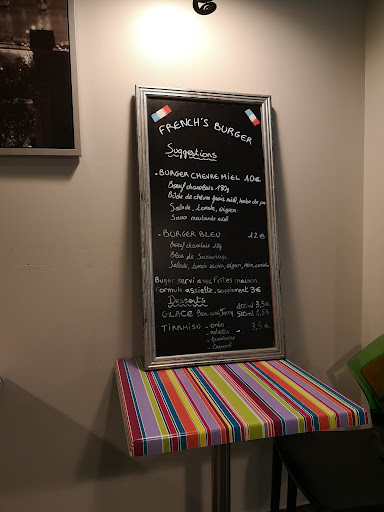 FRENCH'S BURGER
Suggestions
- BURGER CHEVRE MIEL 10€
Boeuf charolais 180g
Bûche de chèvre frais miel,
Salade, tomate, oignon
Sauce moutarde miel
- BURGER BLEU 12€
Boeuf charolais
Bleu de Sassenage
Salade, tomate séchée, oignon, noix,
Burger servi avec Frites maison
Formule assiette, supplément 3€
Desserts
GLACE Ben and Jerry 100ml 3,5€
500ml
TIRAMISU - oréo 3,5€
- nutella
- framboise